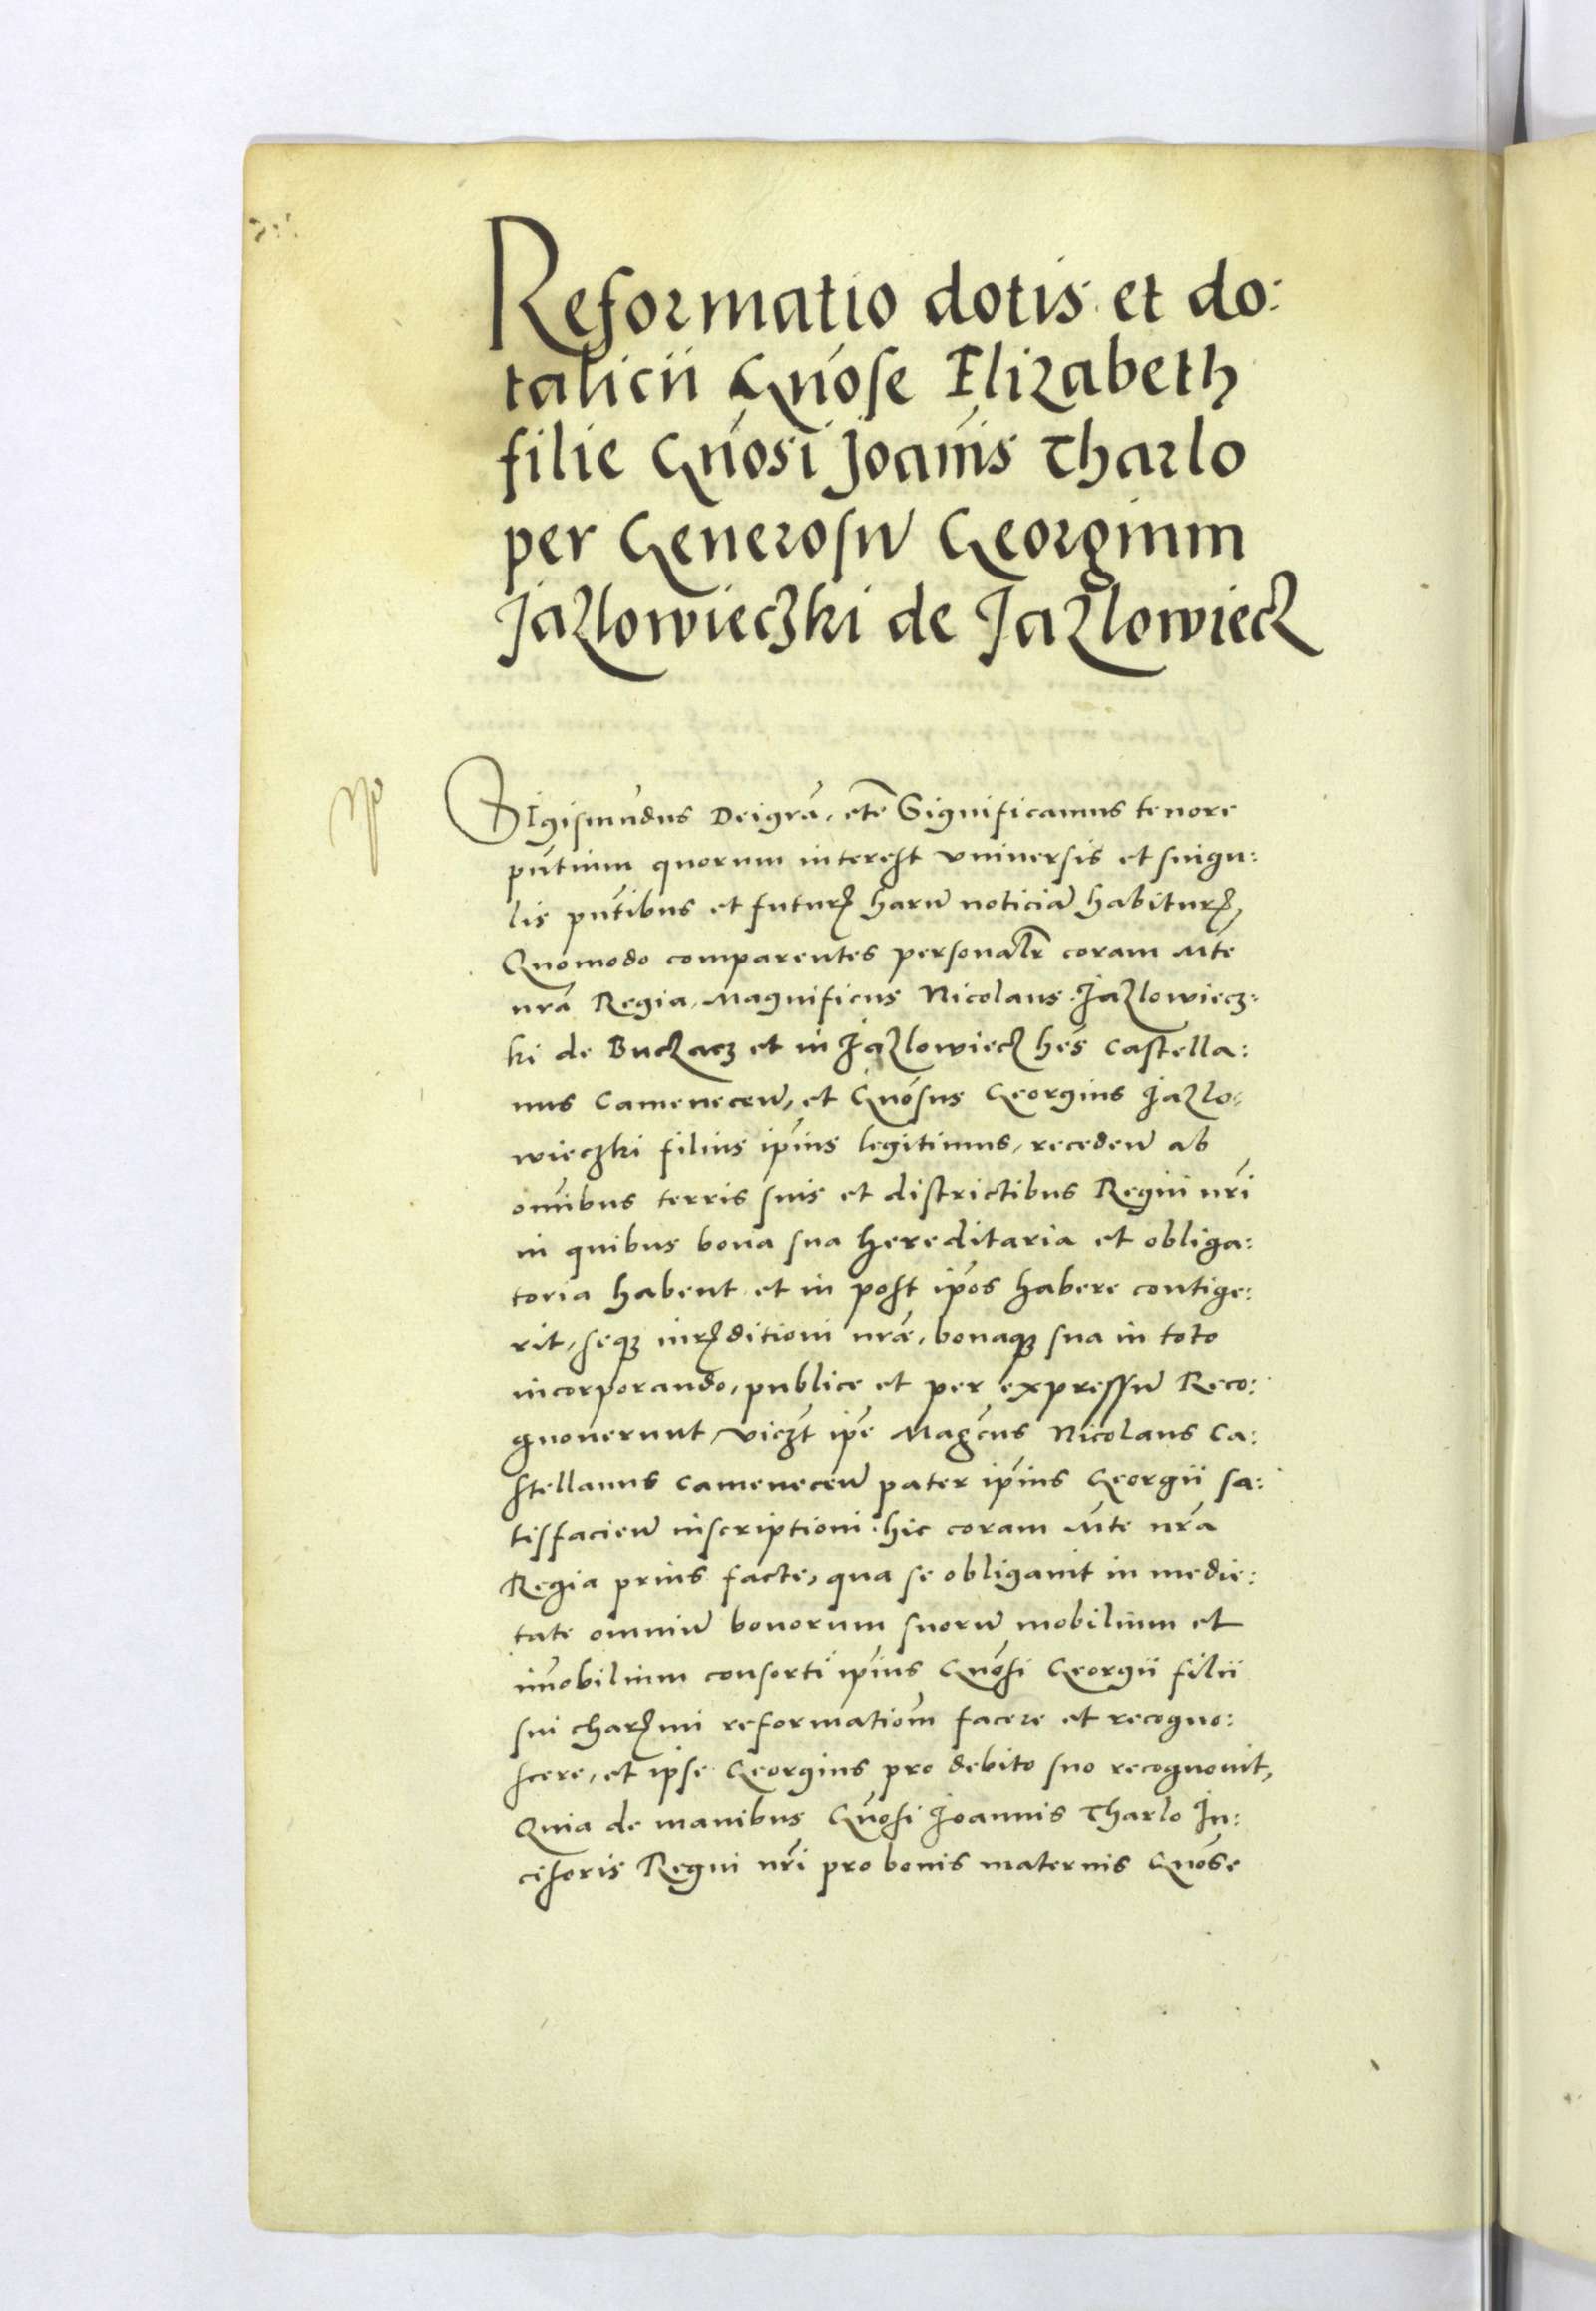 Reformatio dotis et do:
talicii Gnōse Elizabeth
filie Gnōsi Joānis Tharlo
per Generosū Georgium
Jazlowieczki de Jazlowiecz
SIgismūdus Dei grā, etē Significamus tenore
pn̄tium quorum interest vniversis et singu:
lis pn̄tibus et futurꝭ harū noticiā habiturꝭ,
Quomodo comparentes personalr̄ coram Mte
nrā Regia, Magnificus Nicolaus Jazlowiecz:
ki de Buczacz et in Jazlowiecz hēs Castella:
nus Camenecen̄, et Gnōsus Georgius Jazlo:
wieczki filius ip̄ius legitimus, receden̄ ab
om̄ibus terris suis et districtibus Regni nrī
in quibus bona sua hereditaria et obliga:
toria habent et in post ip̄os habere contige:
rit, seqꝫ iurꝭditioni nrāe, bonaqꝫ sua in toto
incorporando, publice et per expressū Reco:
gnouerunt, viczt̄ ip̄e Magcūs Nicolaus Ca:
stellanus Camenecen̄ pater ip̄ius Georgii sa:
tisfacien̄ inscriptioni hic coram Mte nrā
Regia prius facte, qua se obligauit in medie:
tate omniū bonorum suorū mobilium et
im̄obilium consorti ip̄ius Gnōsi Georgii filii
sui charꝭmi reformatiōm facere et recogno:
scere, et ipse Georgius pro debito suo recognouit,
Quia de manibus Gnōsi Joannis Tharlo In:
cisoris Regni nrī pro bonis maternis Gnōse